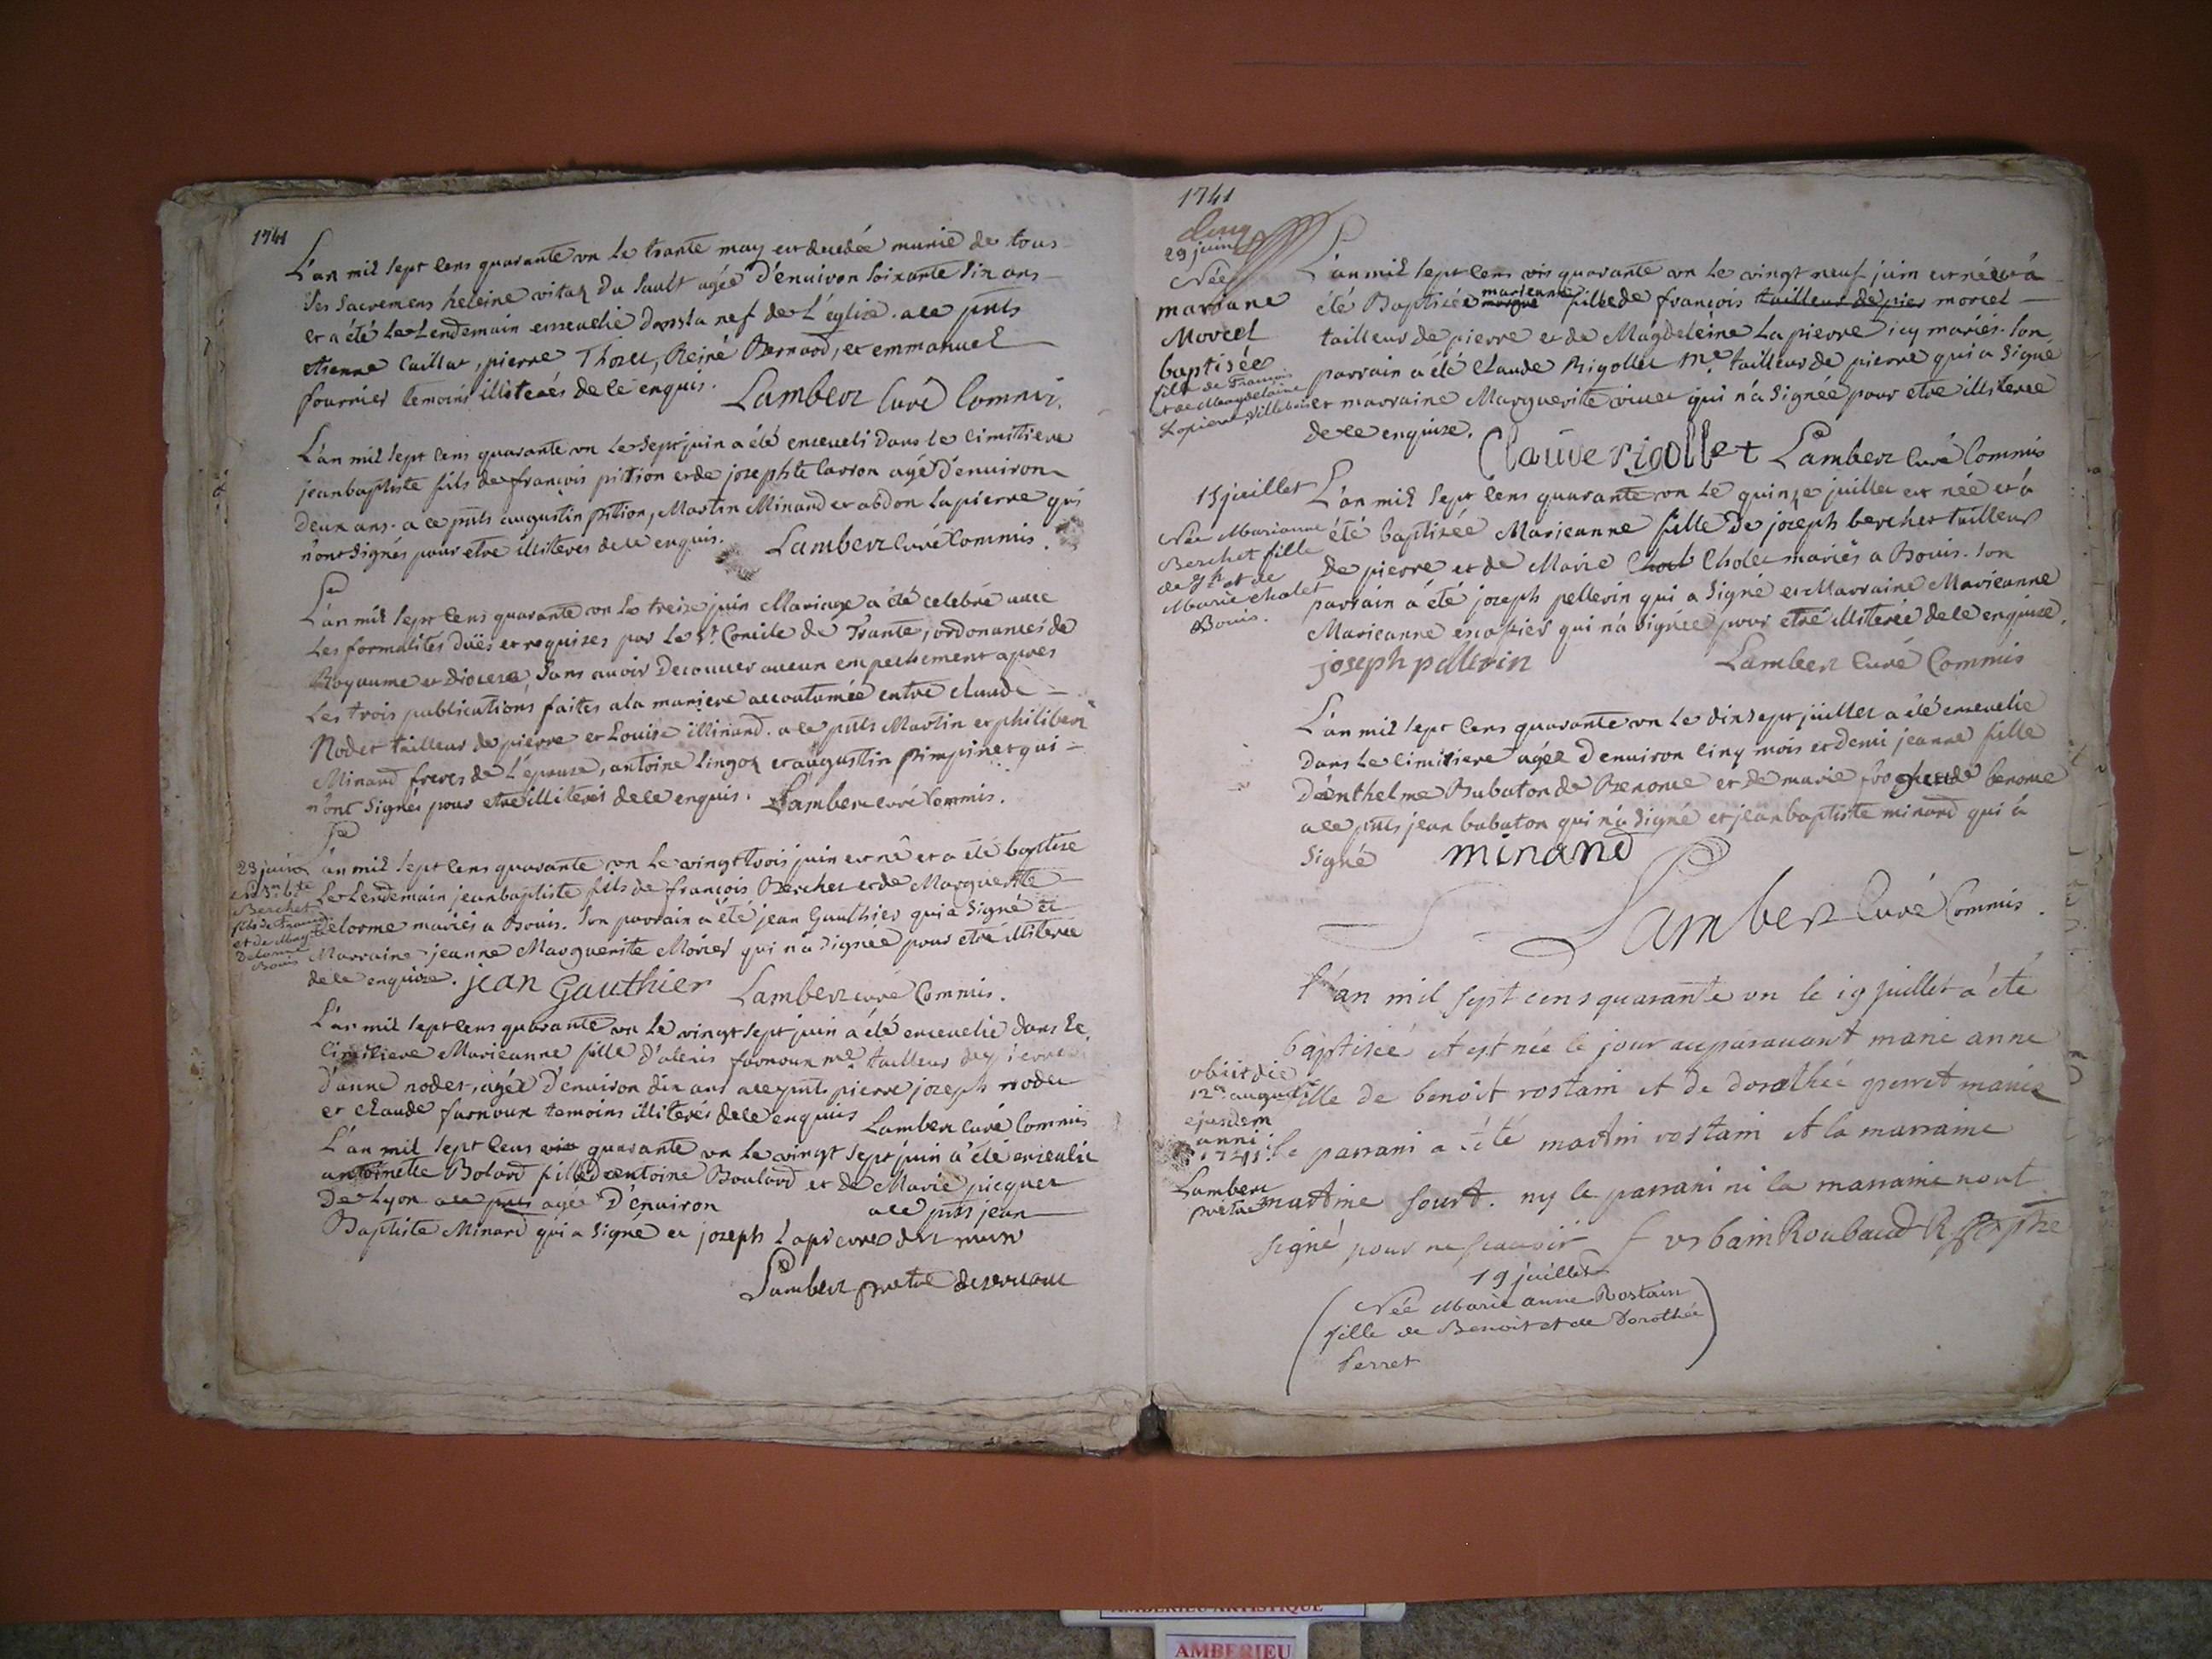 1741
L'an mil sept cens quarante un le trante may est decedée munie de tous
ses sacremens heleine vitaz du Sault agée d'environ soixante six ans
et a été le lendemain ensevelie dans la nef de l'église. a ce pnts
etienne Caillat, pierre Thozet, Reiné Bernard, et emmanuel
fournier temoins illiterés de ce enquis. Lambert Curé Commis.
L'an mil sept cens quarante un le sept juin a été enseveli dans le cimitiere
jean baptiste fils de françois pittion et de josephte Carron agé d'environ
deux ans. a ce pnts augustin pittion, Martin Minand et abdon Lapierre qui
n'ont signés pour etre illiteres de ce enquis. Lambert Curé Commis.
L'an mil sept cens quarante un le treize juin Mariage a été celebré avec
les formalités duës et requises par le St. Concile de Trante, ordonances de
Royaume et diocese, sans avoir decouver aucun empechement apres
les trois publications faites a la maniere accoutumée entre claude
Nodet tailleur de pierre et Louise Minand. a ce pnts Martin et philibert
Minand freres de l'épouse, antoine lingoz et augustin pimpinet qui
n'ont signés pour etre illiterés de ce enquis. Lambert curé Commis.
23 juin
Berchet
fils de Franç.
et de Marg.
Delorme
Bouis
L'an mil sept cens quarante un le vingt trois juin est né et a été baptisé
le lendemain jean baptiste fils de françois Berchet et de Marguerite
delorme mariés a Bouis. son parrain a été jean Gauthier qui a signé et
Marraine jeanne Marguerite Morier qui n'a signée pour etre illiterée
de ce enquise. jean Gauthier Lambert curé Commis.
L'an mil sept cens quarante un le vingt sept juin a été ensevelie dans le
cimitiere Marieanne fille d'alexis farnoux me. tailleur de pierre
d'anne nodet, agée d'environ dix ans a ce pnts pierre joseph nodet
et claude farnoux temoins illiterés de ce enquis Lambert Curé Commis
L'an mil sept cens vin quarante un le vingt sept juin a été ensevelie
antoinette Bolard fille d'antoine Boulard et de Marie picquet
de Lyon a ce pnts agé d'environ a ce pnts jean
Baptiste Minand qui a signé et joseph Lapierre
Lambert pretre desservant
1741
29 juin
Née
mariane
Morcel
baptisée
fille de François
et de Magdelaine
Lapierre Villebois
L'an mil sept cens vin quarante un le vingt neuf juin est née et a
été Baptisée marieanne fille de françois tailleur de pier morcel
tailleur de pierre et de Magdeleine Lapierre icy mariés. son
parrain a été claude Rigollet me. tailleur de pierre qui a signé
et marraine Marguerite vivier qui n'a signée pour etre illiteree
de ce enquise. Claude rigollet Lambert Curé Commis
15 juillet
Née Marianne
Berchet fille
de Jh et de
Marie cholet
Bouis.
L'an mil sept cens quarante un le quinze juillet est née et a
été baptisée Marieanne fille de joseph berchet tailleur
de pierre et de Marie Chol Cholet mariés a Bouis. son
parrain a été joseph pellerin qui a signé et Marraine Marieanne
Marieanne escofier qui n'a signée pour etre illiterée de ce enquise.
joseph pellerin Lambert Curé Commis
L'an mil sept cens quarante un le dix sept juillet a été ensevelie
dans le cimitiere agée d'environ cinq mois et demi jeanne fille
d'anthelme Babaton de Benonce et de marie de benonce
a ce pnts jean babaton qui n'a signé et jean baptiste minand qui a
signé minand
Lambert Curé Commis.
L'an mil sept cens quarante un le 19 juillet a été
baptisée et est née le jour auparavant marie anne
fille de benoit rostain et de dorothée perret mariez
le parrain a été martin rostain et la marraine
martine sourt. ny le parrain ni la marraine n'ont
signé pour ne scavoir f urbain Roubaud
obiit die
12a augusti
ejusdem
anni
1741.
Lambert
pretre
19 juillet
(Née Marie anne Rostain
fille de Benoit et de Dorothée
Perret)
AMBERIEU ARTISTIQUE
AMBERIEU